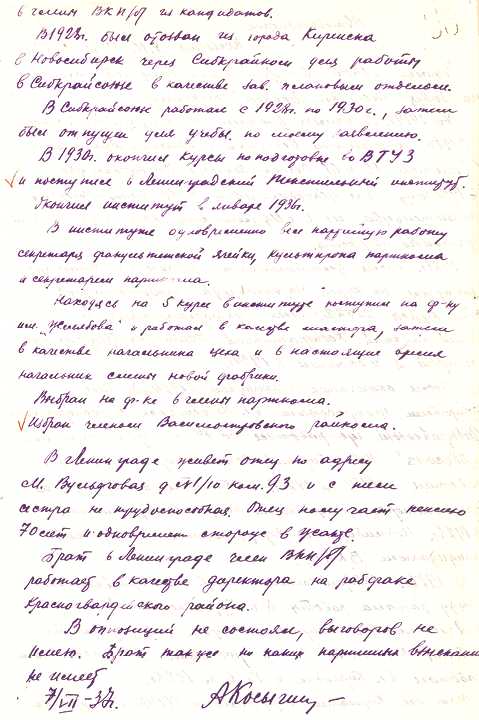 в члены ВКП/б/ из кандидатов.
В 1928г. был отозван из города Киренска
в Новосибирск через Сибкрайком для работы
в Сибкрайсоюз в качестве зав. плановым отделом.
В Сибкрайсоюзе работал с 1928г. по 1930г., затем
был отпущен для учебы по моему заявлению.
В 1930г. окончил курсы по подготовке во ВТУЗ
и поступил в Ленинградский текстильный институт.
Окончил институт в январе 1936г.
В институте одновременно вел партийную работу
секретаря факультетской ячейки, культпропа парткома
и секретарем парткома.
Находясь на 5 курсе в институте поступил на ф-ку
им. "Желябова" и работал в качестве мастера, затем
в качестве начальника цеха и в настоящее время
начальник смены новой фабрики.
Выбран на ф-ке в члены парткома.
Избран членом Василеостровского райкома.
В Ленинграде живет отец по адресу
М. Бульдговая д №1/10 ком. 93 и с ним
сестра не трудоспособная. Отец получает пенсию
70 лет и одновременно сторож в Жакте.
Брат в Ленинграде член ВКП/б/
работает в качестве директора на рабфаке
Красногвардейского района.
В оппозиций не состоял, выговоров не
имею. Брат также ни каких партийных взыскании
не имеет
7/VII-37г. АКосыгин